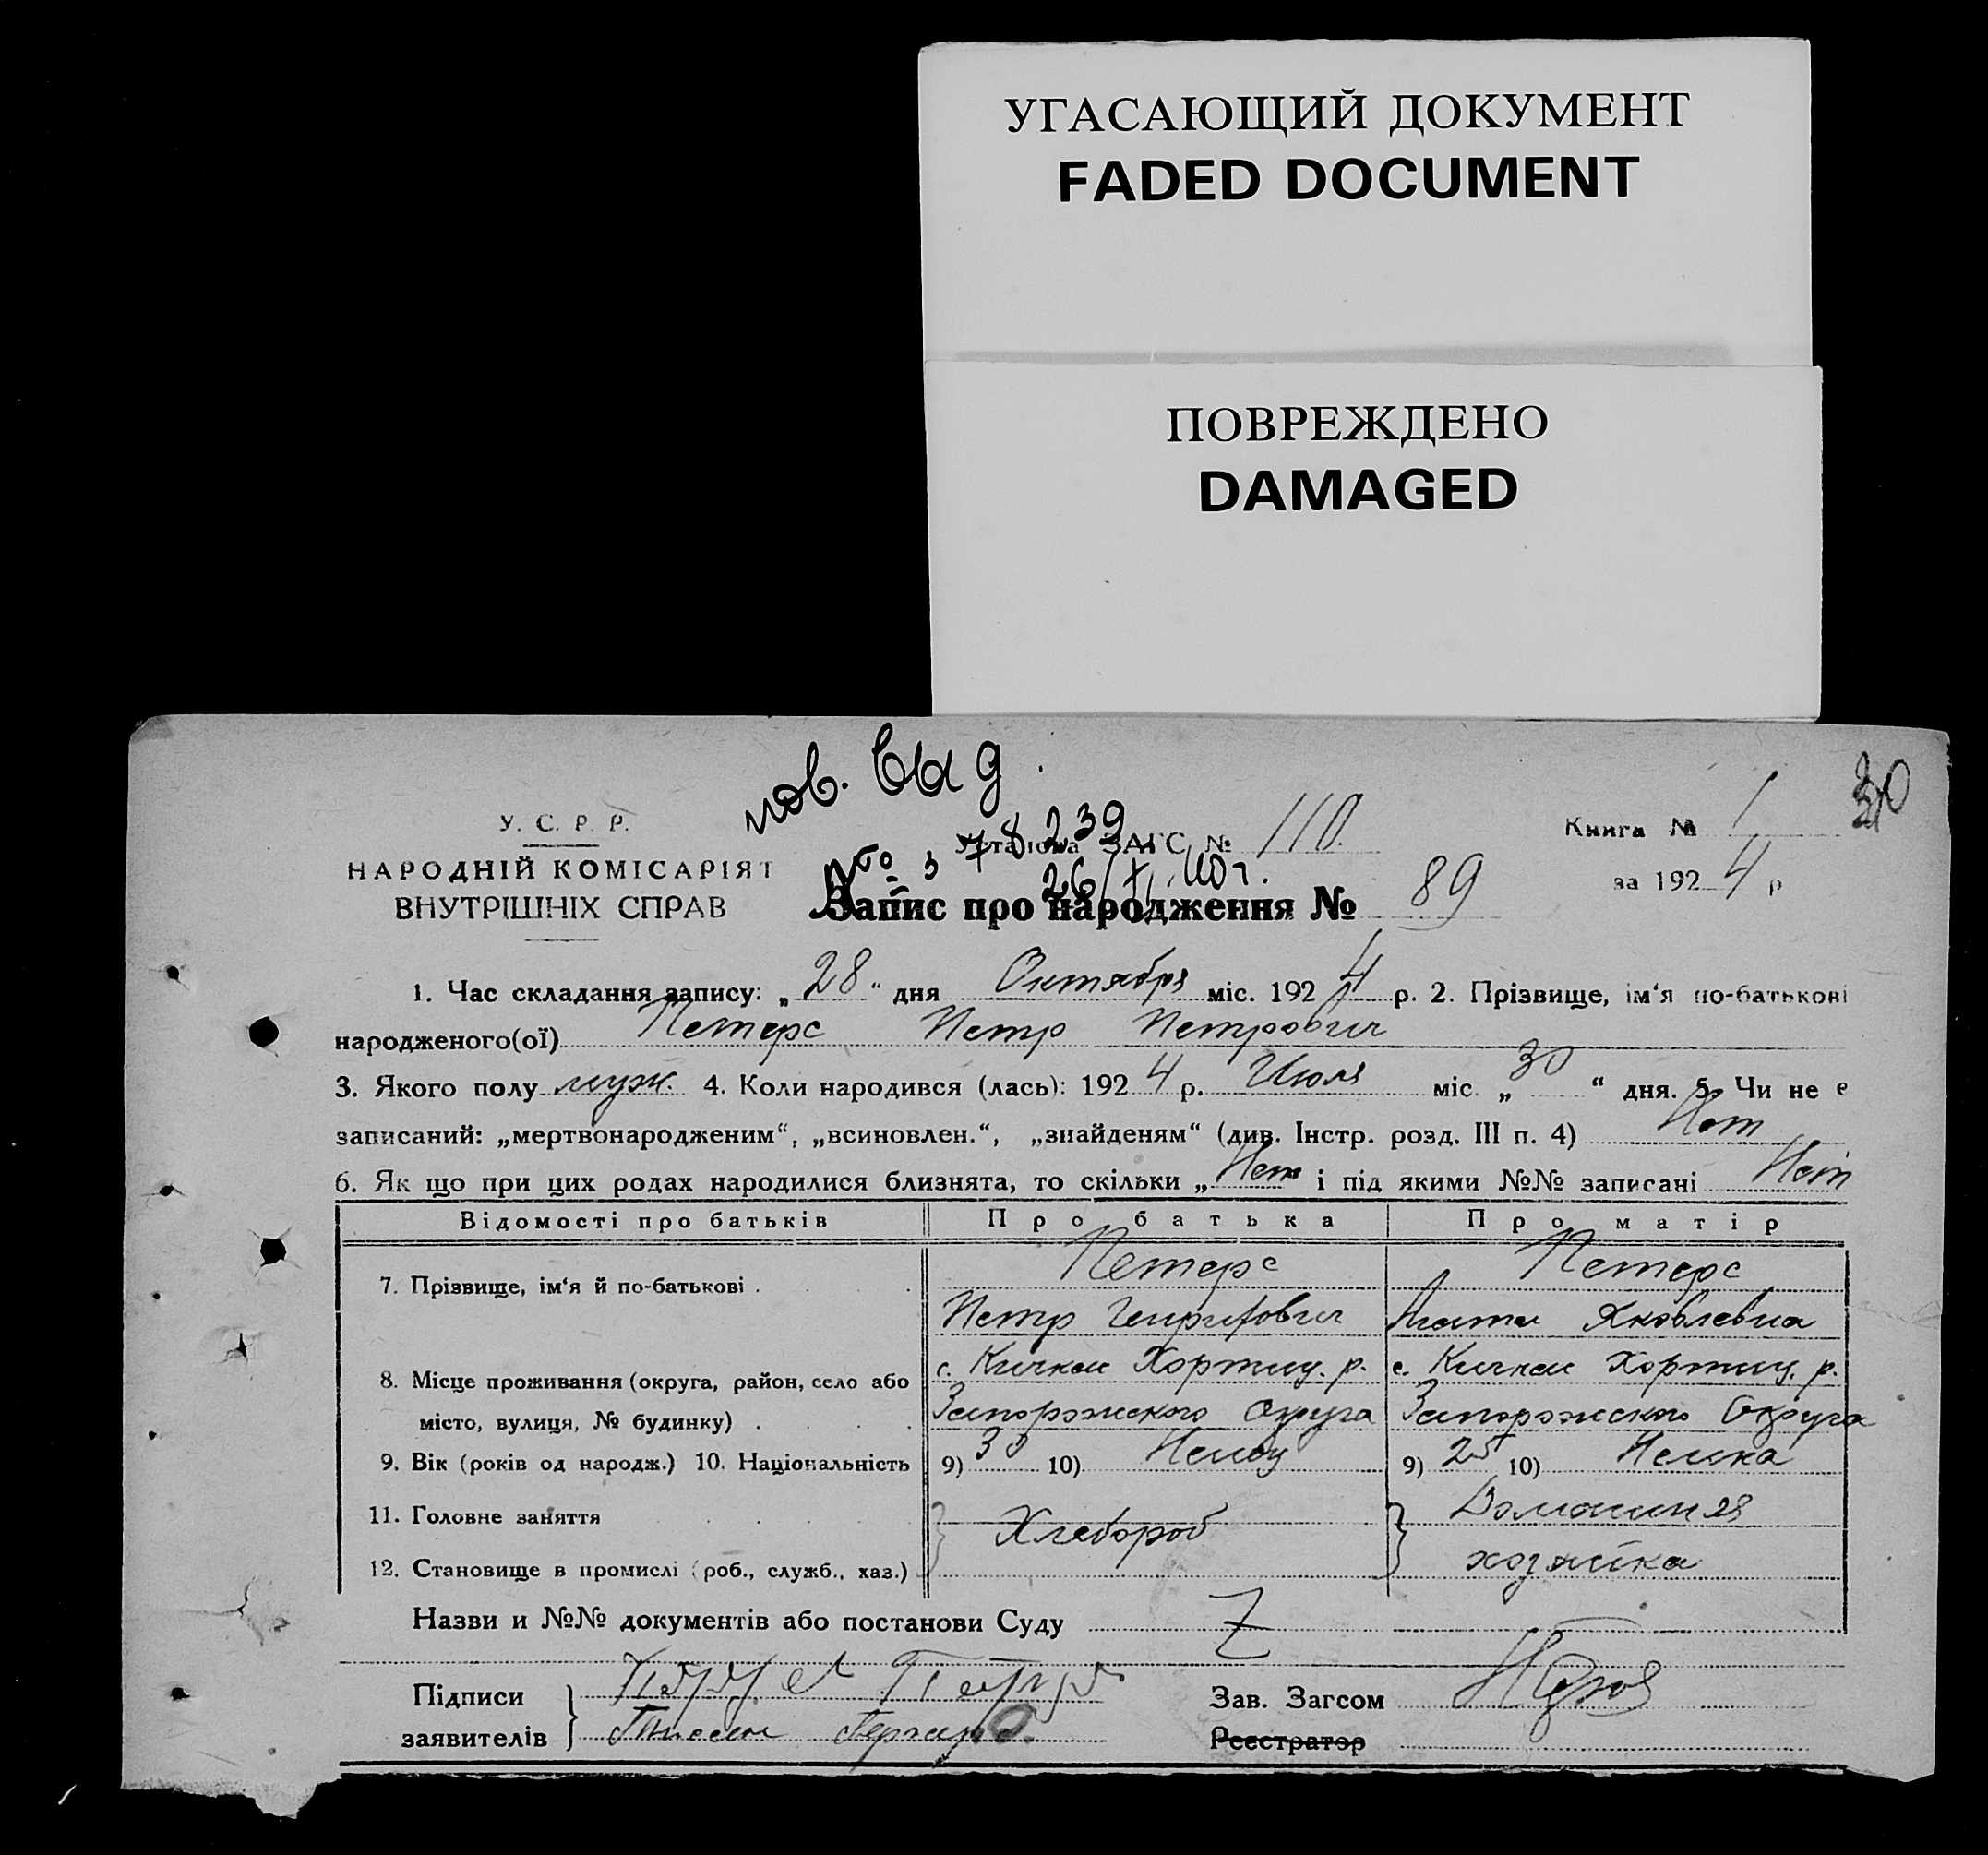 УГАСАЮЩИЙ ДОКУМЕНТ
FADED DOCUMENT
ПОВРЕЖДЕНО
DAMAGED
пов. выд.
30
У. С. Р. Р.
НАРОДНІЙ КОМІСАРІЯТ
ВНУТРІШНІХ СПРАВ
Установа ЗАГС № 110.
Книга № 1
за 1924 р
78239
26/XI 40 г.
Запис про народження № 89
1. Час складання запису: „28“ дня Октября міс. 1924 р. 2. Прізвище, ім‘я по-батькові
народженого(ої) Петерс Петр Петрович
3. Якого полу муж. 4. Коли народився (лась): 1924 р. Июля міс. „30“ дня. 5. Чи не є
записаний: „мертвонародженим“, „всиновлен.“, „знайденям“ (див. Інстр. розд. III п. 4) Нет
6. Як що при цих родах народилися близнята, то скільки „Нет“ і під якими №№ записані Нет
Відомості про батьків Про батька Про матір
7. Прізвище, ім‘я й по-батькові . Петерс Петерс
Петр Генрихович Яковлевна
8. Місце проживання (округа, район, село або с. Кичкас Хортиц. р. с. Кичкас Хортиц. р.
місто, вулиця, № будинку) . Запорожского Округа Запорожского Округа
9. Вік (років од народж.) 10. Національність 9) 30 10) Немец 9) 25 10) Немка
11. Головне заняття Хлебороб Домашняя
12. Становище в промислі (роб., служб., хаз.) хозяйка
Назви и №№ документів або постанови Суду Z
Підписи
заявителів
Зав. Загсом
Реєстратор